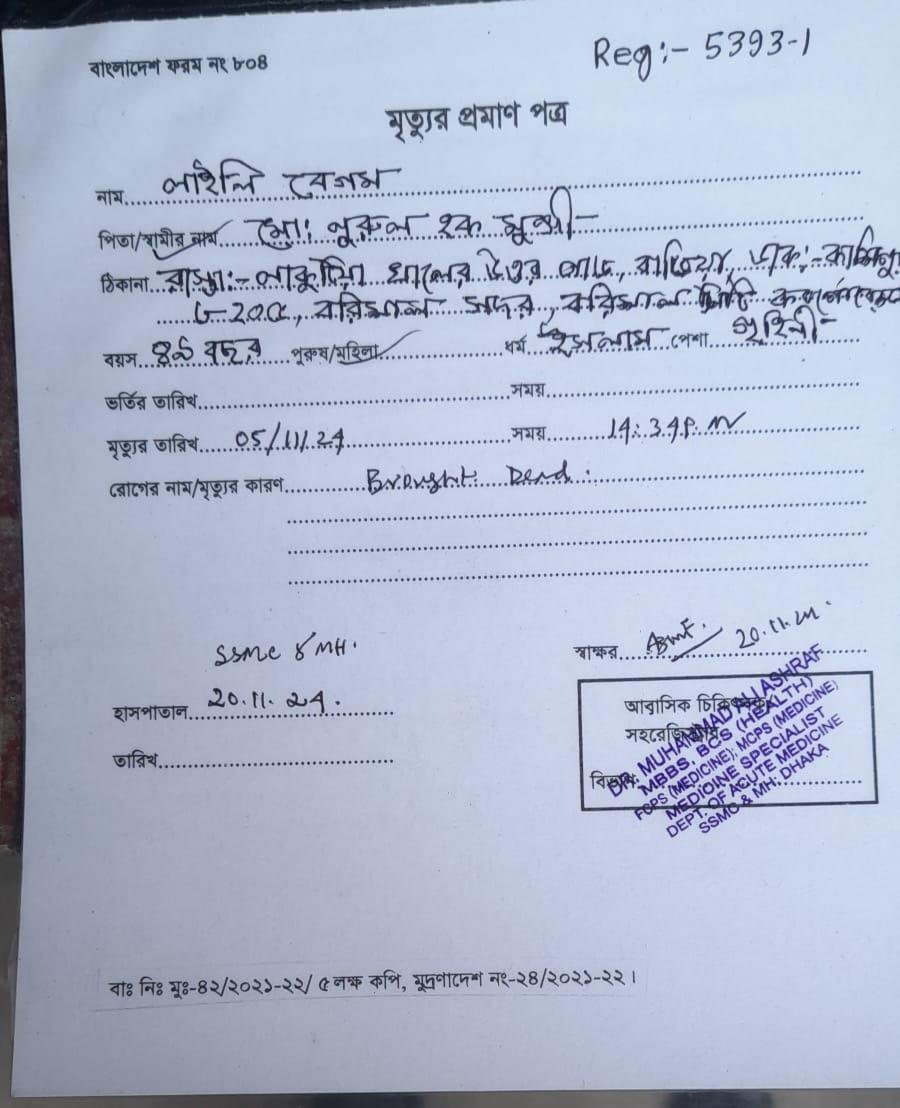 বাংলাদেশ ফরম নং ৮০৪
Reg:- 5393-1
মৃত্যুর প্রমাণ পত্র
নাম লাইলি বেগম
পিতা/স্বামীর নাম মো: নুরুল হক মুন্সী
ঠিকানা বাসা:- লাকুটিয়া খালের উত্তর পাড়, ডাক:-
৮২০০, বরিশাল সদর, বরিশাল সিটি
বয়স ৪৯ বছর পুরুষ/মহিলা ধর্ম ইসলাম পেশা গৃহিনী
ভর্তির তারিখ সময়
মৃত্যুর তারিখ 05/11/24 সময় 14:34 P.M
রোগের নাম/মৃত্যুর কারণ Brought Dead.
SSMC & MH.
স্বাক্ষর 20.11.24
হাসপাতাল 20.11.24.
তারিখ
আবাসিক চিকিৎসক
সহরেজিস্ট্রার
বিভাগ
DR. MUHAMMAD ALI ASHRAF
MBBS, BCS (HEALTH)
FCPS (MEDICINE); MCPS (MEDICINE)
MEDICINE SPECIALIST
DEPT. OF ACUTE MEDICINE
SSMC & MH. DHAKA
বাঃ নিঃ মুঃ-৪২/২০২১-২২/ ৫ লক্ষ কপি, মুদ্রণাদেশ নং-২৪/২০২১-২২।